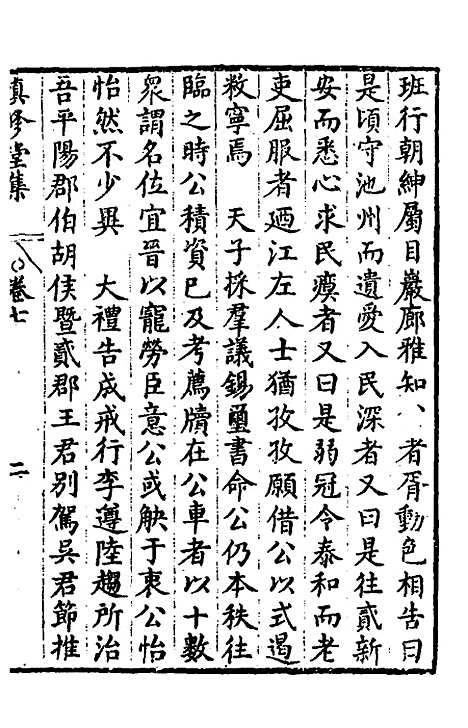 班行朝紳屬目巖廊雅知、者胥動色相告曰
是頃守池州而遺愛入民深者又曰是往貳新
安而悉心求民瘼者又曰是弱冠令泰和而老
吏屈服者迺江左人士猶孜孜願借公以式遏
敉寧焉　天子採羣議錫璽書命公仍本秩往
臨之時公積資已及考薦牘在公車者以十數
衆謂名位宜晉以寵勞臣意公或觖于衷公怡
怡然不少異　大禮告成戒行李遵陸趨所治
吾平陽郡伯胡侯暨貳郡王君別駕吳君節推
真修堂集　卷七　二